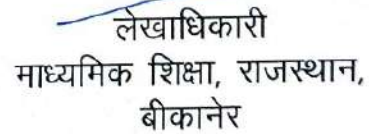 लेखाधिकारी
माध्यमिक शिक्षा, राजस्थान,
बीकानेर